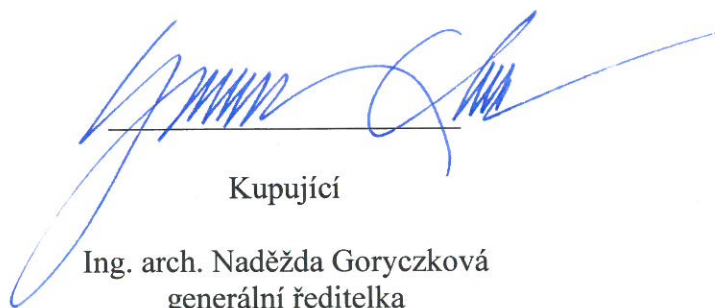 Kupující
Ing. arch. Naděžda Goryczková
generální ředitelka